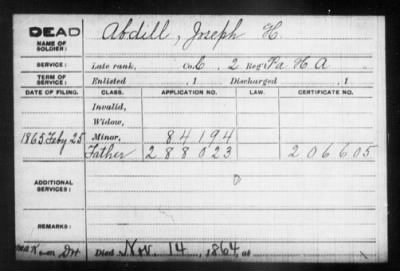 DEAD
NAME OF SOLDIER: Abdill, Joseph H.
SERVICE: Late rank, Co. C, 2 Reg't Pa H A
TERM OF SERVICE: Enlisted , 1 Discharged , 1
DATE OF FILING. CLASS. APPLICATION NO. LAW. CERTIFICATE NO.
Invalid,
Widow,
1865 Feby 25 Minor, 84194
Father 288023 206605
ADDITIONAL SERVICES:
REMARKS:
Died Nov. 14, 1864, at